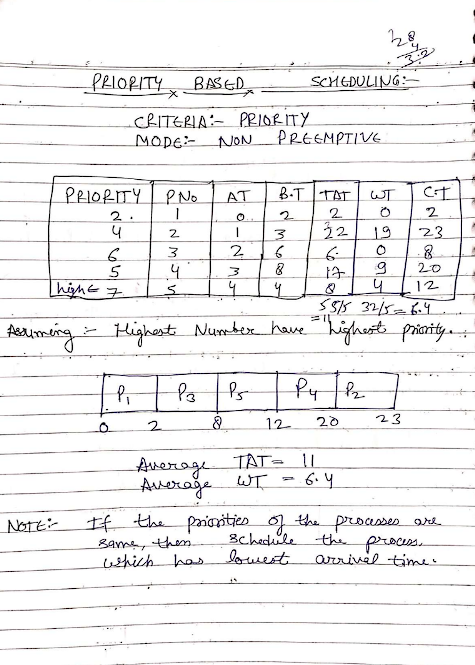 28
4
32
PRIORITY BASED SCHEDULING:-
CRITERIA:- PRIORITY
MODE:- NON PREEMPTIVE
PRIORITY P No AT B.T TAT WT C.T
2. 1 0 2 2 0 2
4 2 1 3 22 19 23
6 3 2 6 6 0 8
5 4 3 8 17 9 20
high ← 7 5 4 4 8 4 12
55/5 32/5 = 6.4
= 11
Assuming:- Highest Number have highest priority.
P1 P3 P5 P4 P2
0 2 8 12 20 23
Average TAT = 11
Average WT = 6.4
NOTE:- If the priorities of the processes are
same, then schedule the process,
which has lowest arrival time.